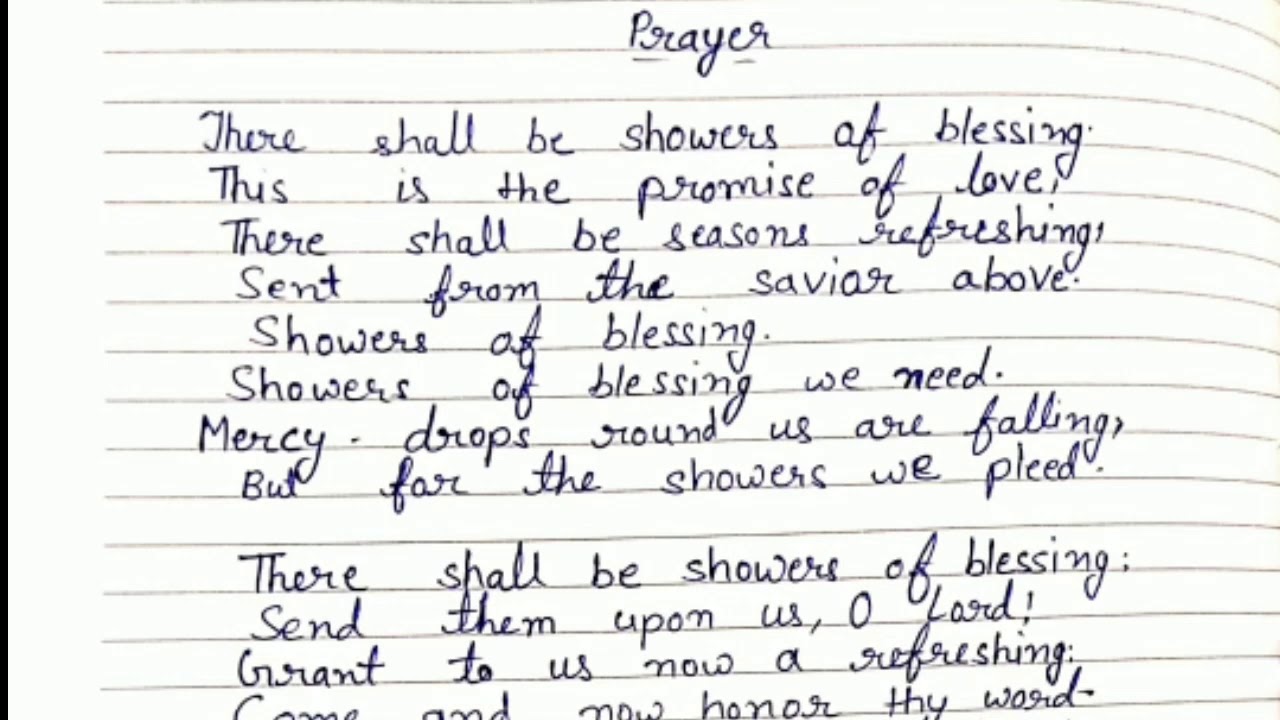 Prayer
There shall be showers of blessing.
This is the promise of love;
There shall be seasons refreshing,
Sent from the savior above.
Showers of blessing.
Showers of blessing we need.
Mercy - drops round us are falling,
But for the showers we pleed.
There shall be showers of blessing:
Send them upon us, O Lord!
Grant to us now a refreshing:
Come and now honor thy word-